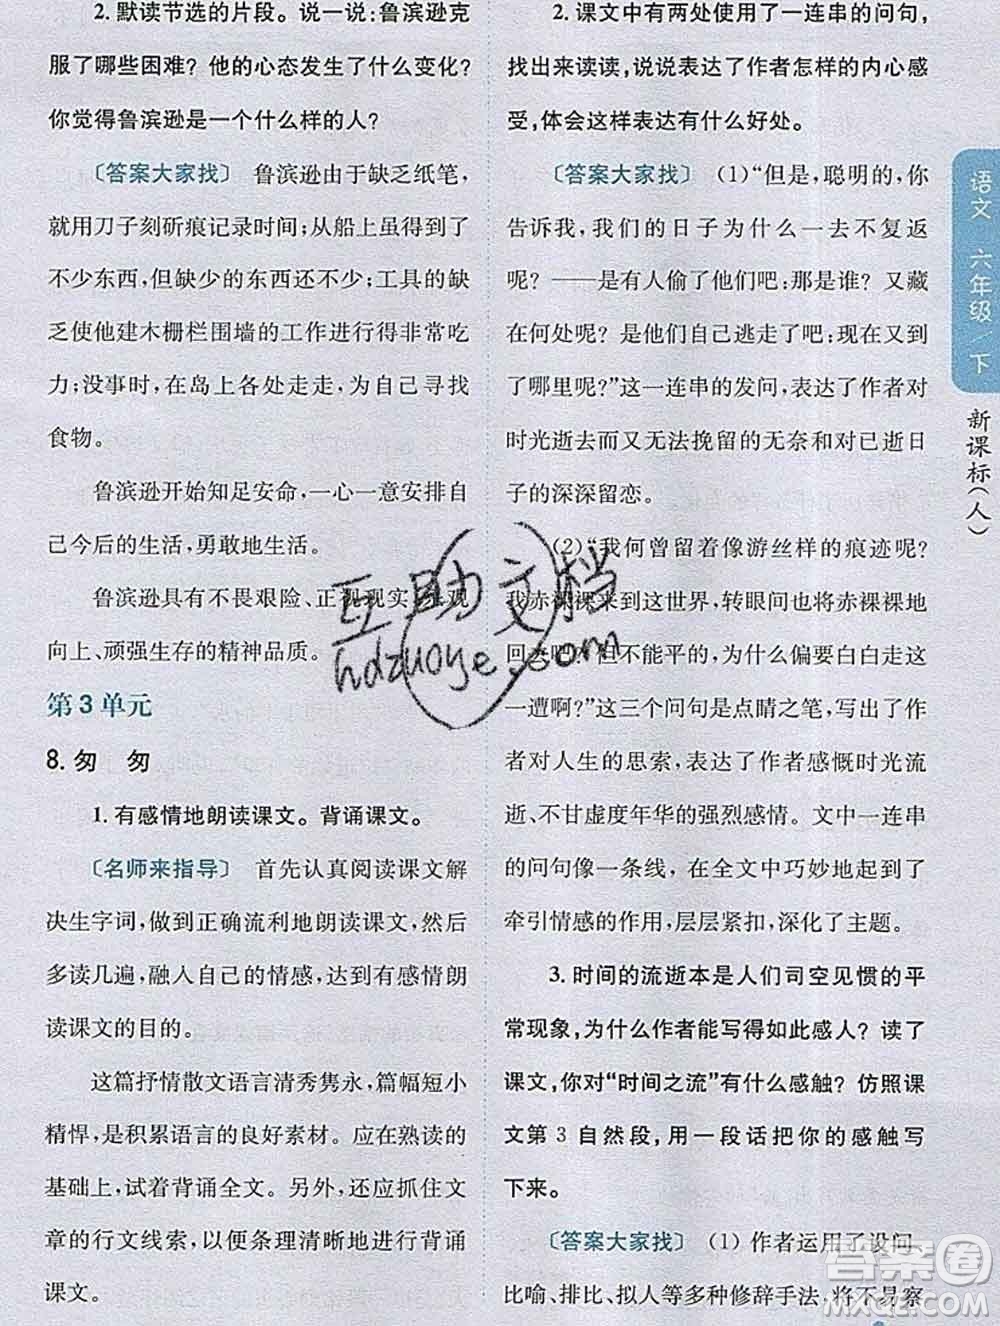 2. 默读节选的片段。说一说:鲁滨逊克
服了哪些困难？他的心态发生了什么变化？
你觉得鲁滨逊是一个什么样的人?
〔答案大家找〕 鲁滨逊由于缺乏纸笔，
就用刀子刻斫痕记录时间；从船上虽得到了
不少东西，但缺少的东西还不少；工具的缺
乏使他建木栅栏围墙的工作进行得非常吃
力；没事时，在岛上各处走走，为自己寻找
食物。
鲁滨逊开始知足安命，一心一意安排自
己今后的生活，勇敢地生活。
鲁滨逊具有不畏艰险、正视现实、乐观
向上、顽强生存的精神品质。
第 3 单元
8. 匆 匆
1. 有感情地朗读课文。背诵课文。
〔名师来指导〕 首先认真阅读课文解
决生字词，做到正确流利地朗读课文，然后
多读几遍，融入自己的情感，达到有感情朗
读课文的目的。
这篇抒情散文语言清秀隽永，篇幅短小
精悍，是积累语言的良好素材。应在熟读的
基础上，试着背诵全文。另外，还应抓住文
章的行文线索，以便条理清晰地进行背诵
课文。
2. 课文中有两处使用了一连串的问句，
找出来读读，说说表达了作者怎样的内心感
受，体会这样表达有什么好处。
〔答案大家找〕 (1)“但是，聪明的，你
告诉我，我们的日子为什么一去不复返
呢？——是有人偷了他们吧：那是谁？又藏
在何处呢？是他们自己逃走了吧：现在又到
了哪里呢？”这一连串的发问，表达了作者对
时光逝去而又无法挽留的无奈和对已逝日
子的深深留恋。
(2)“我何曾留着像游丝样的痕迹呢？
我赤裸裸来到这世界，转眼间也将赤裸裸地
回去吧？但不能平的，为什么偏要白白走这
一遭啊？”这三个问句是点睛之笔，写出了作
者对人生的思索，表达了作者感慨时光流
逝、不甘虚度年华的强烈感情。文中一连串
的问句像一条线，在全文中巧妙地起到了
牵引情感的作用，层层紧扣，深化了主题。
3. 时间的流逝本是人们司空见惯的平
常现象，为什么作者能写得如此感人？读了
课文，你对“时间之流”有什么感触？仿照课
文第 3 自然段，用一段话把你的感触写
下来。
〔答案大家找〕 (1) 作者运用了设问、
比喻、排比、拟人等多种修辞手法，将不易察
语文 六年级/下
新课标(人)
互助文档
hdzuoye.com
答案圈
MXQE.COM